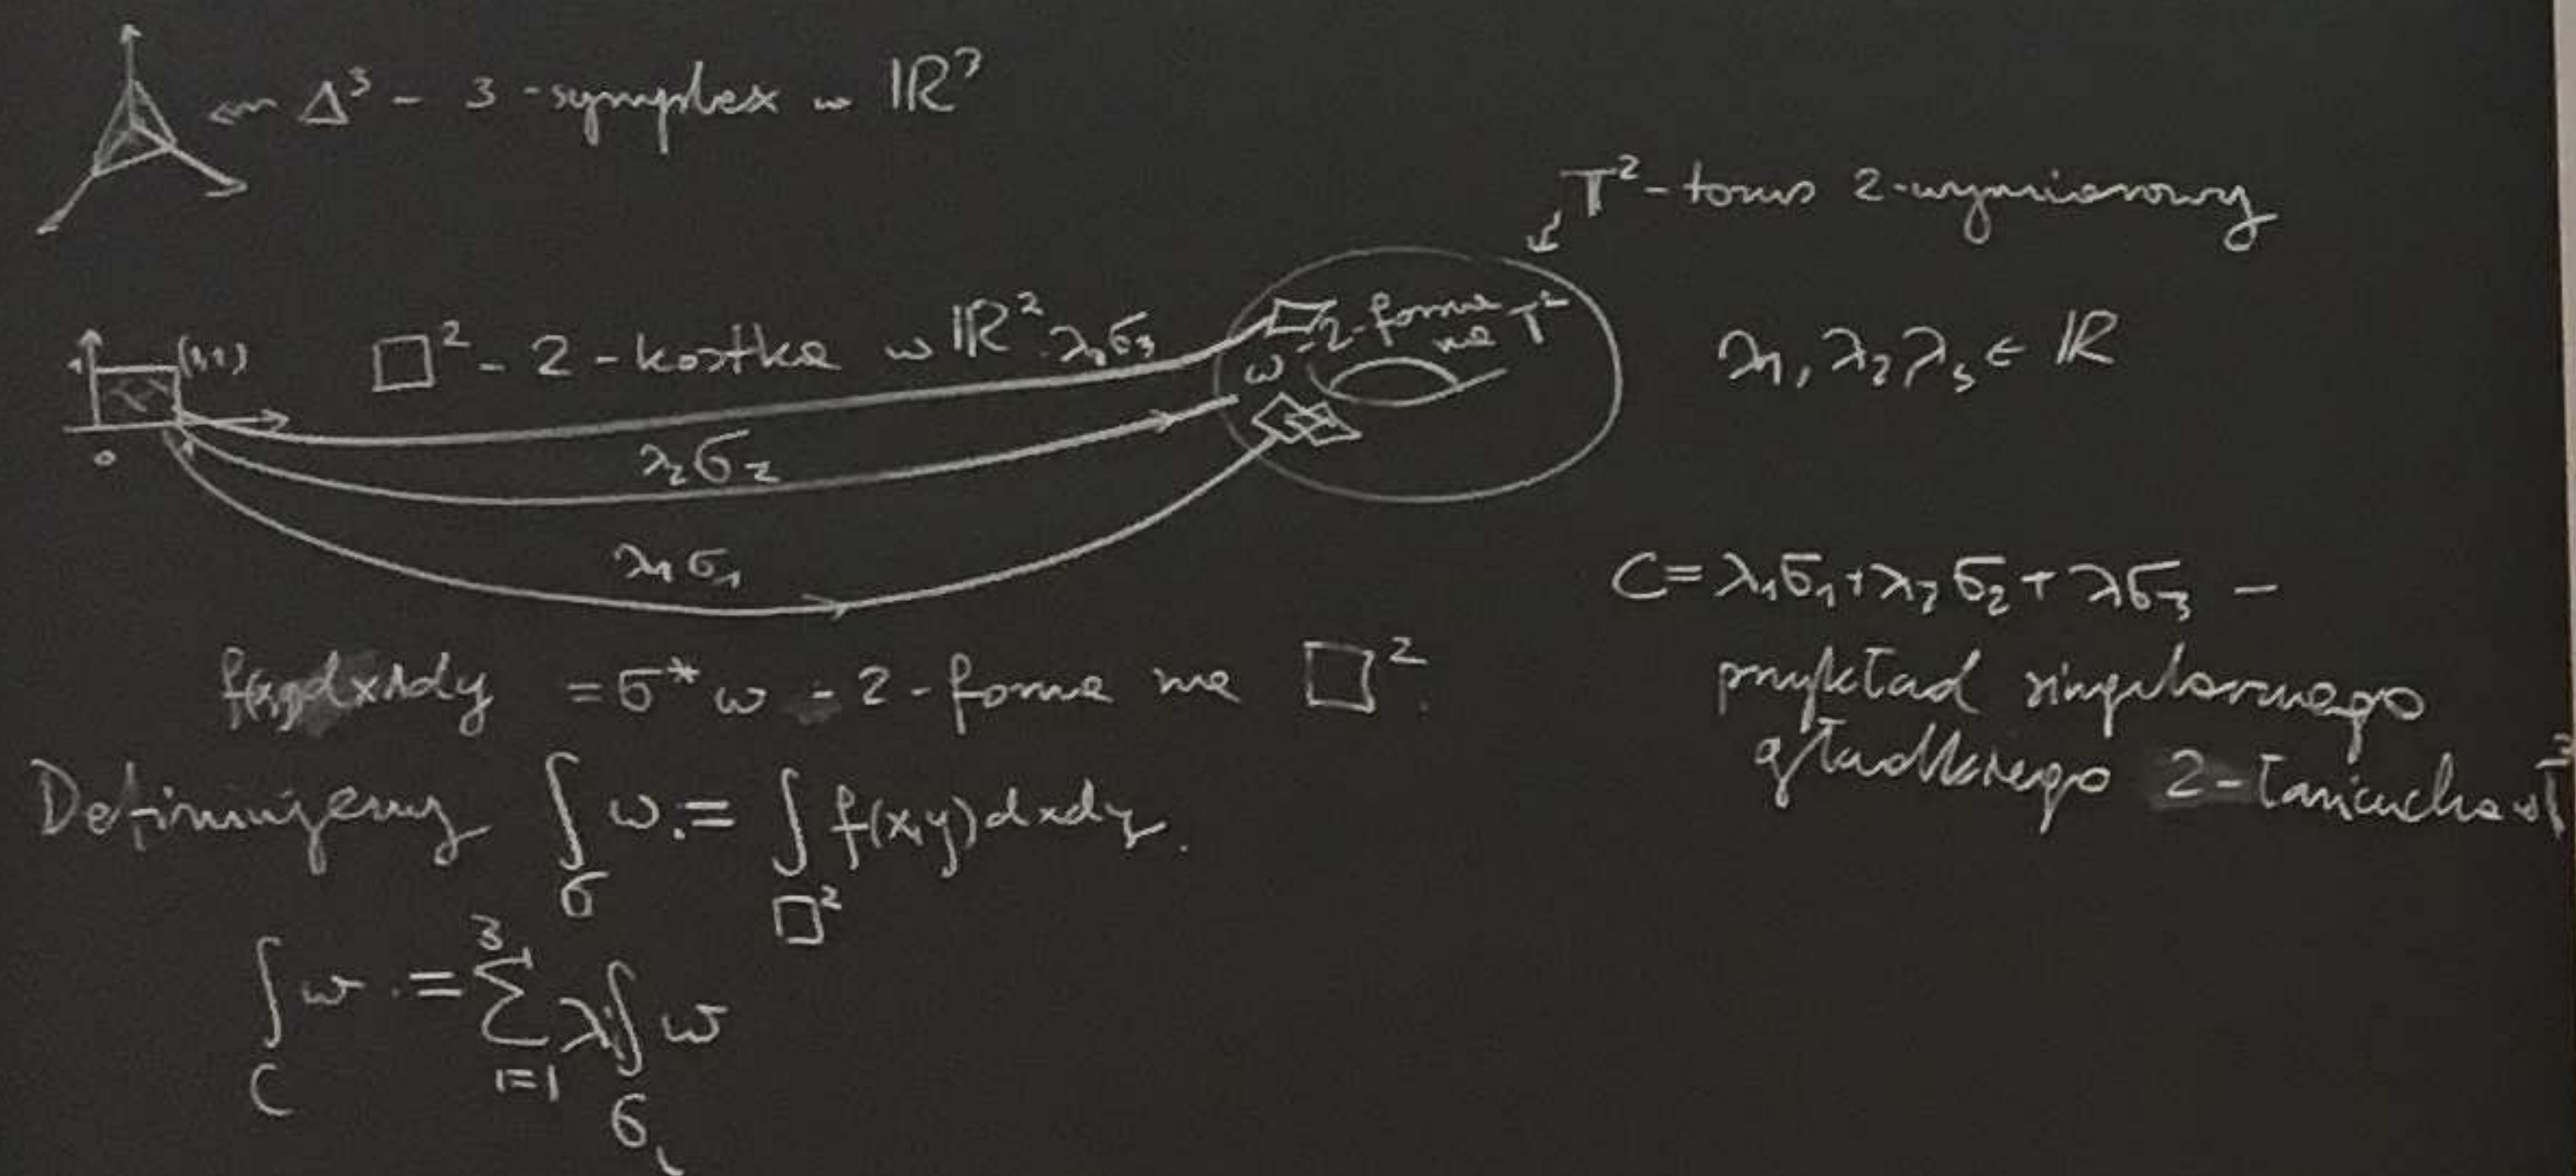 Δ³ - 3-symplex w ℝ³
T² - torus 2-wymiarowy
1 (1,1)
□² - 2-kostka w ℝ² λ₃σ₃
ω - 2-forma na T²
λ₁, λ₂ λ₃ ∈ ℝ
0
λ₂σ₂
λ₁σ₁
C = λ₁σ₁ + λ₂σ₂ + λσ₃ -
przykład singularnego
gładkiego 2-łańcucha w T²
f(x,y)dx∧dy = σ*ω - 2-forma na □².
Definiujemy ∫_σ ω := ∫_□² f(x,y)dxdy.
∫_C ω := ∑_{i=1}^{3} λᵢ ∫_{σᵢ} ω